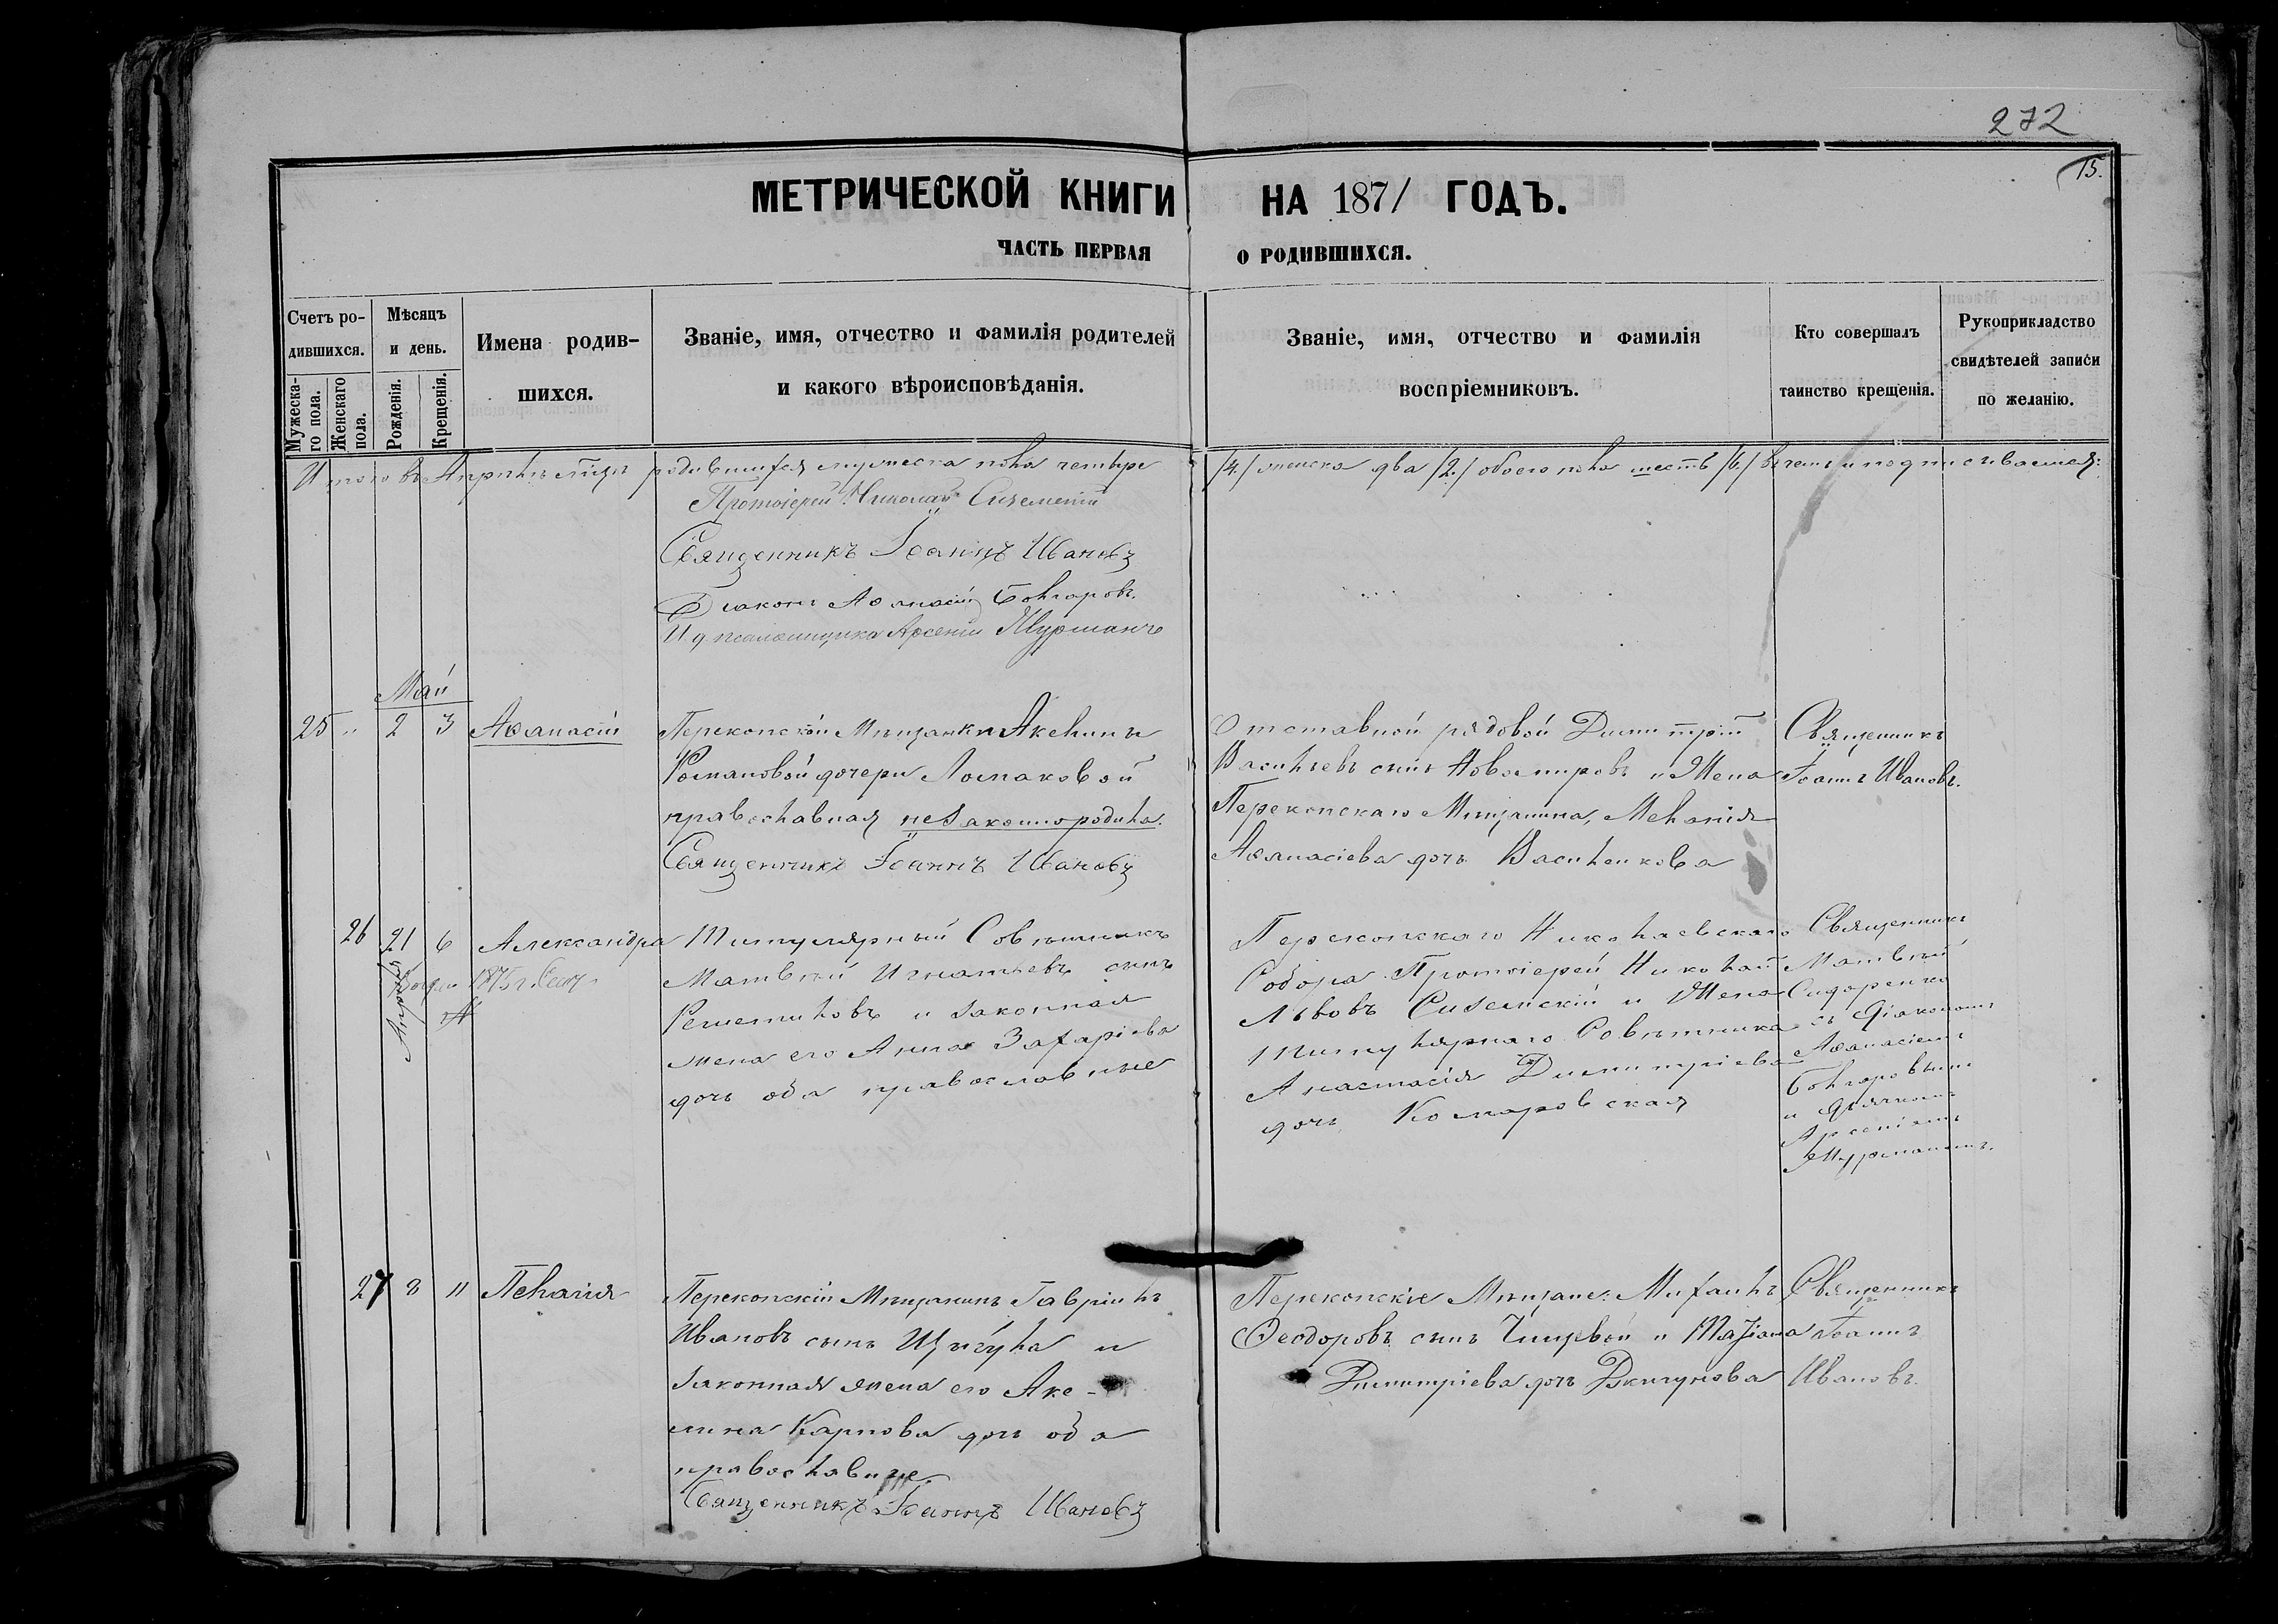 272
15.
МЕТРИЧЕСКОЙ КНИГИ НА 1871 ГОДЪ.
ЧАСТЬ ПЕРВАЯ О РОДИВШИХСЯ.
Счетъ ро-
дившихся.
Мужеска-
го пола.
Женскаго
пола.
Мѣсяцъ
и день.
Рожденія.
Крещенія.
Имена родив-
шихся.
Званіе, имя, отчество и фамилія родителей
и какого вѣроисповѣданія.
Званіе, имя, отчество и фамилія
воспріемниковъ.
Кто совершалъ
таинство крещенія.
Рукоприкладство
свидѣтелей записи
по желанію.
Итого въ Апрѣлѣ родившихся мужеска пола четыре /4./ женска два /2./ обоего пола шесть /6./ въ чемъ и подписываемся:
Протоіерей Николай
Священникъ Іоаннъ Ивановъ
Діаконъ Аѳанасій Болгаровъ.
И д псаломщика Арсеній Журманъ
Май
25 " 2 3 Аѳанасій
Перекопской Мѣщанки Акелины
Романовой дочери Ломаковой
православная незаконнородила.
Священникъ Іоаннъ Ивановъ
Отставной рядовой Димитрій
Васильевъ сынъ и Жена
Перекопскаго Мѣщанина, Меланія
Аѳанасіева дочь Василенкова
Священникъ
Іоаннъ Ивановъ.
26 21 6 Александра
Апрѣля
1875 г.
Титулярный Совѣтникъ
Матвѣй Игнатьевъ сынъ
Решетиловъ и законная
жена его Анна Захаріева
дочь оба православные
Перекопскаго Николаевскаго
Собора Протоіерей Николай
Львовъ и Жена
Титулярнаго Совѣтника
Анастасія Димитріева
дочь Комаровская
Священникъ
Матвѣй
Сидоренко
съ Діакономъ
Аѳанасіемъ
Болгаровымъ
и дьячкомъ
Арсеніемъ
Журманомъ.
27 8 11 Пелагія
Перекопскій Мѣщанинъ Гавріилъ
Ивановъ сынъ и
законная жена его Аке-
лина Карпова дочь оба
православные.
Священникъ Іоаннъ Ивановъ
Перекопскіе Мѣщане: Михаилъ
Ѳеодоровъ сынъ и
Димитріева дочь
Священникъ
Іоаннъ
Ивановъ.